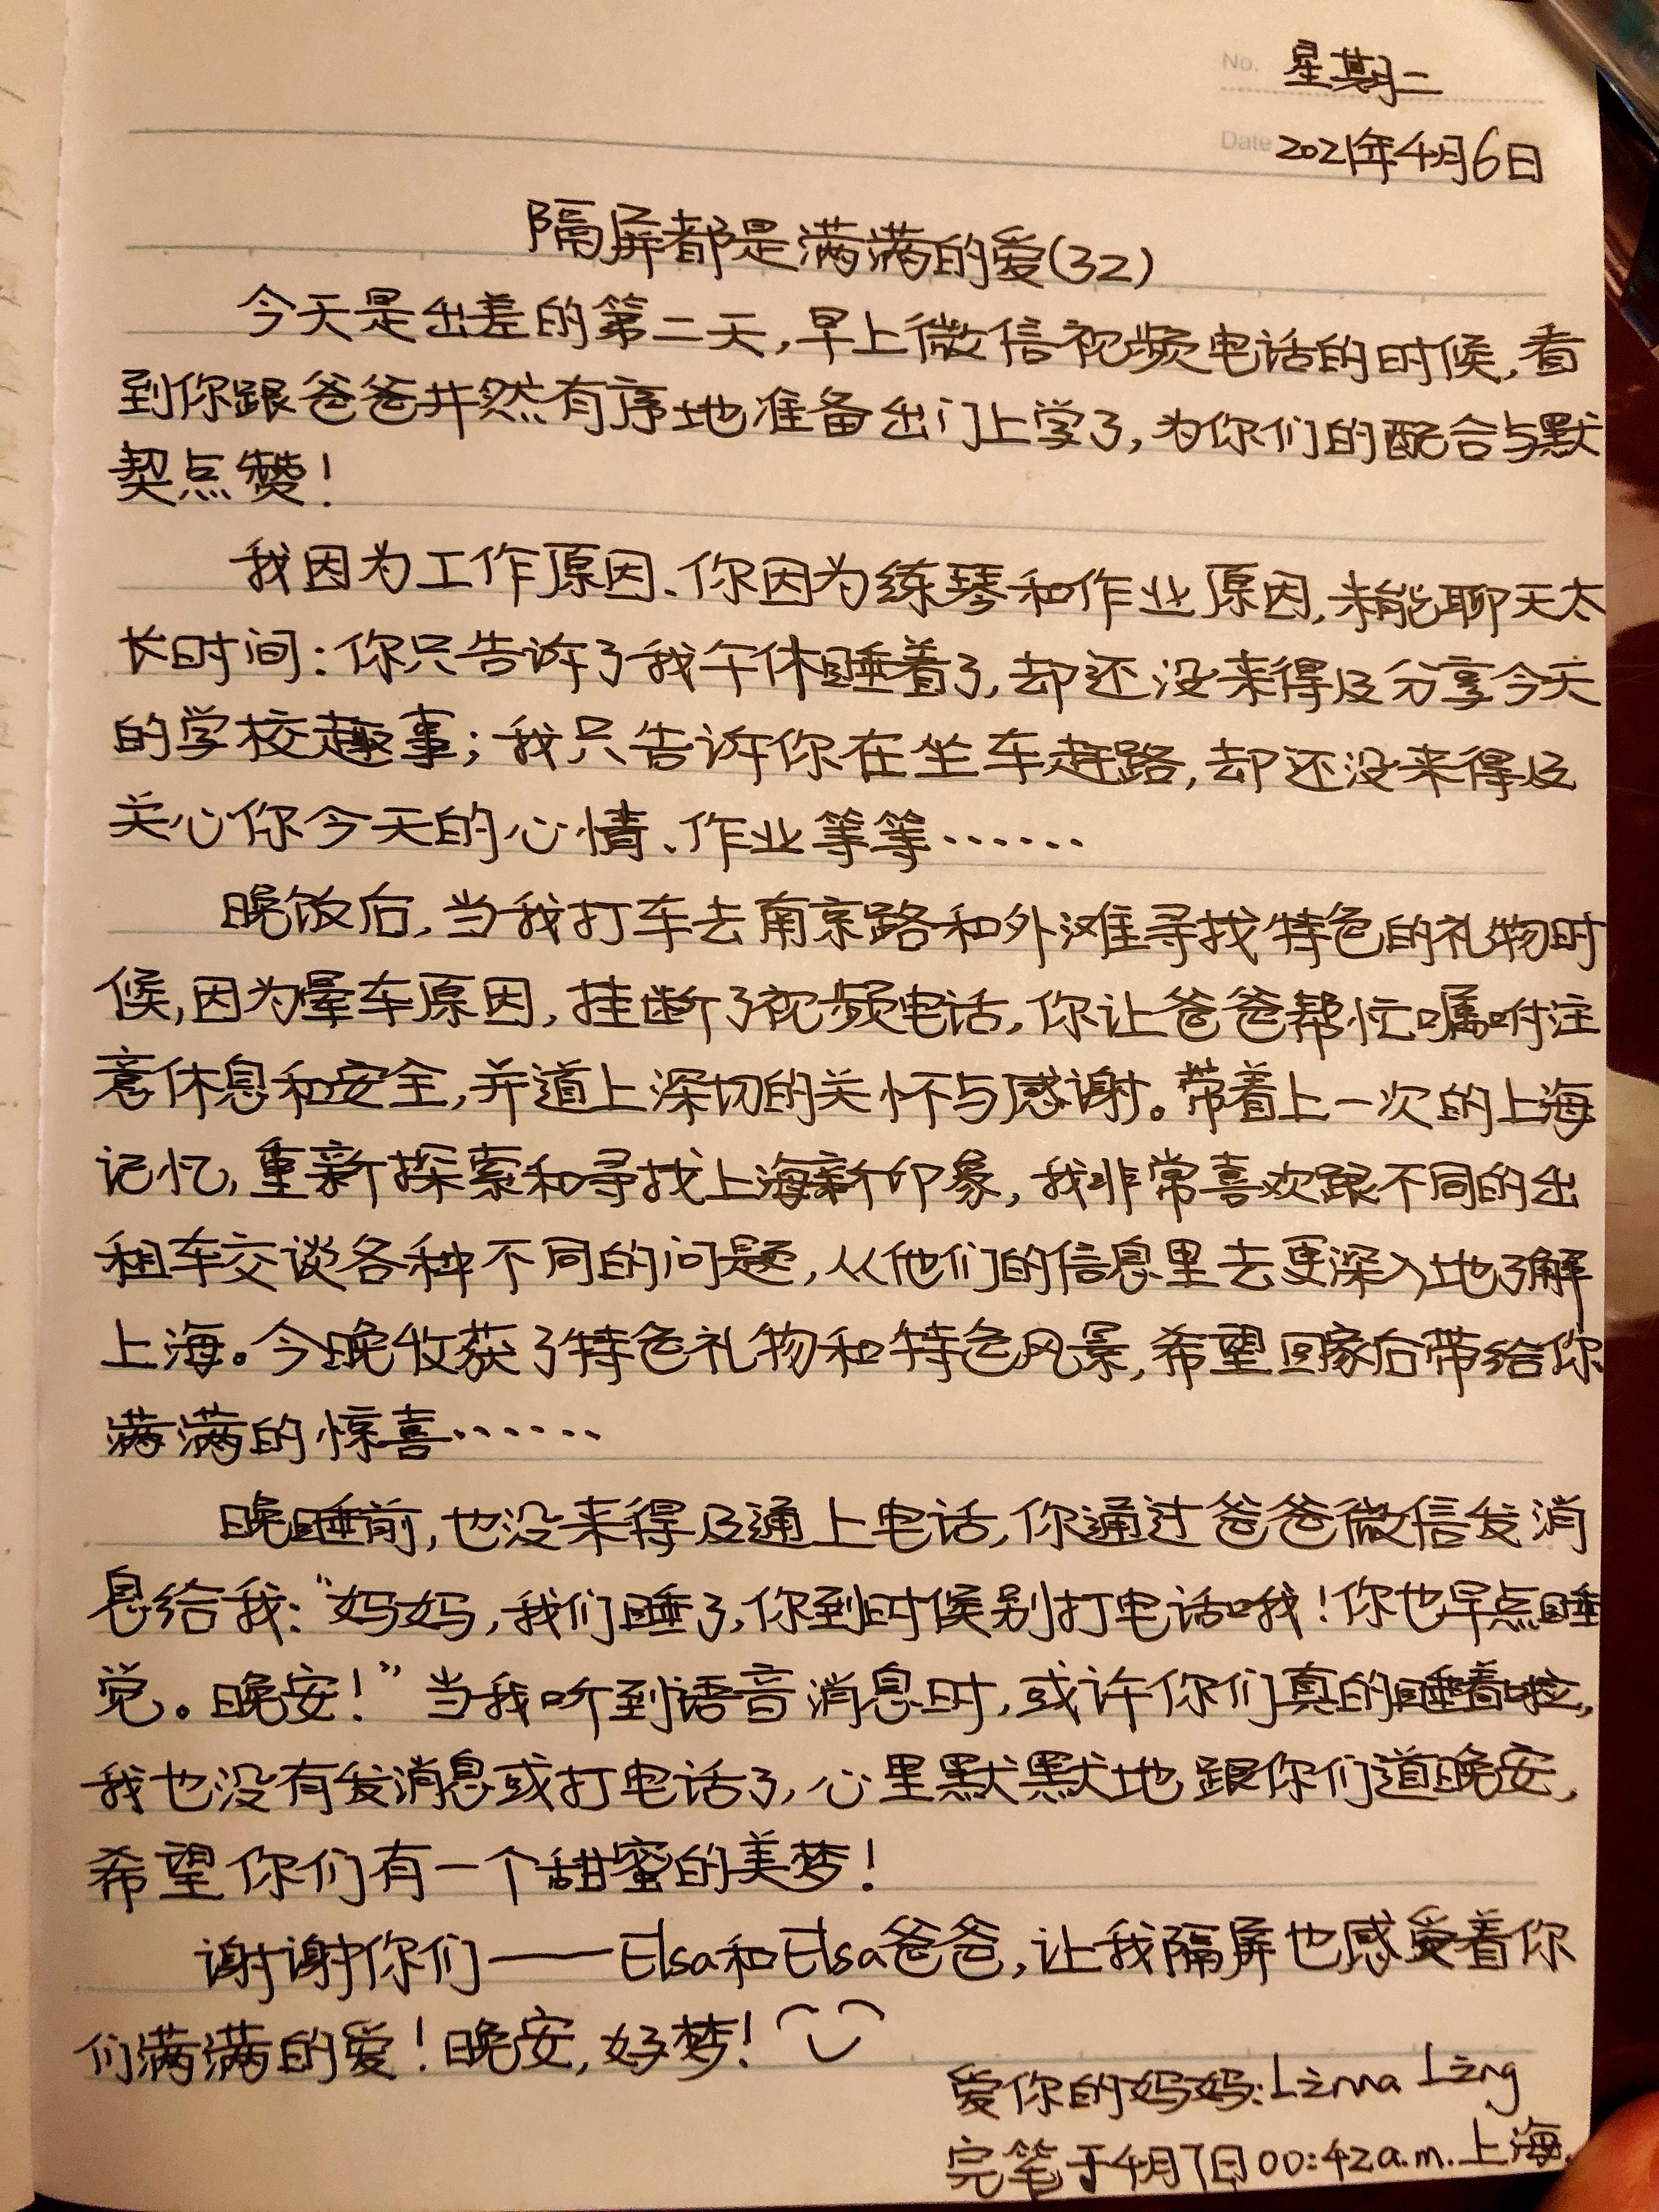 No. 星期二
Date 2021年4月6日
隔屏都是满满的爱(32)
今天是出差的第二天,早上微信视频电话的时候,看
到你跟爸爸井然有序地准备出门上学了,为你们的配合与默
契点赞!
我因为工作原因、你因为练琴和作业原因,未能聊天太
长时间:你只告诉了我午休睡着了,却还没来得及分享今天
的学校趣事;我只告诉你在坐车赶路,却还没来得及
关心你今天的心情、作业等等……
晚饭后,当我打车去南京路和外滩寻找特色的礼物时
候,因为晕车原因,挂断了视频电话,你让爸爸帮忙嘱咐注
意休息和安全,并道上深切的关怀与感谢。带着上一次的上海
记忆,重新探索和寻找上海新印象,我非常喜欢跟不同的出
租车交谈各种不同的问题,从他们的信息里去更深入地了解
上海。今晚收获了特色礼物和特色风景,希望回家后带给你
满满的惊喜……
晚睡前,也没来得及通上电话,你通过爸爸微信发消
息给我:“妈妈,我们睡了,你到时候别打电话哦!你也早点睡
觉。晚安!”当我听到语音消息时,或许你们真的睡着啦,
我也没有发消息或打电话了,心里默默地跟你们道晚安,
希望你们有一个甜蜜的美梦!
谢谢你们——Elsa和Elsa爸爸,让我隔屏也感受着你
们满满的爱!晚安,好梦!
爱你的妈妈:Linna Ling
完笔于4月7日00:42a.m.上海.